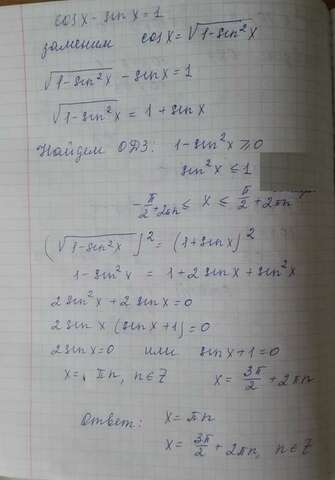 cos x - sin x = 1
заменим cos x = √(1-sin²x)
√(1-sin²x) - sin x = 1
√(1-sin²x) = 1 + sin x
Найдем ОДЗ: 1-sin²x ≥ 0
sin²x ≤ 1
-π/2 + 2πn ≤ x ≤ π/2 + 2πn
(√(1-sin²x))² = (1+sin x)²
1 - sin²x = 1 + 2 sin x + sin²x
2 sin²x + 2 sin x = 0
2 sin x (sin x + 1) = 0
2 sin x = 0 или sin x + 1 = 0
x = πn, n ∈ Z x = 3π/2 + 2πn
Ответ: x = πn
x = 3π/2 + 2πn, n ∈ Z